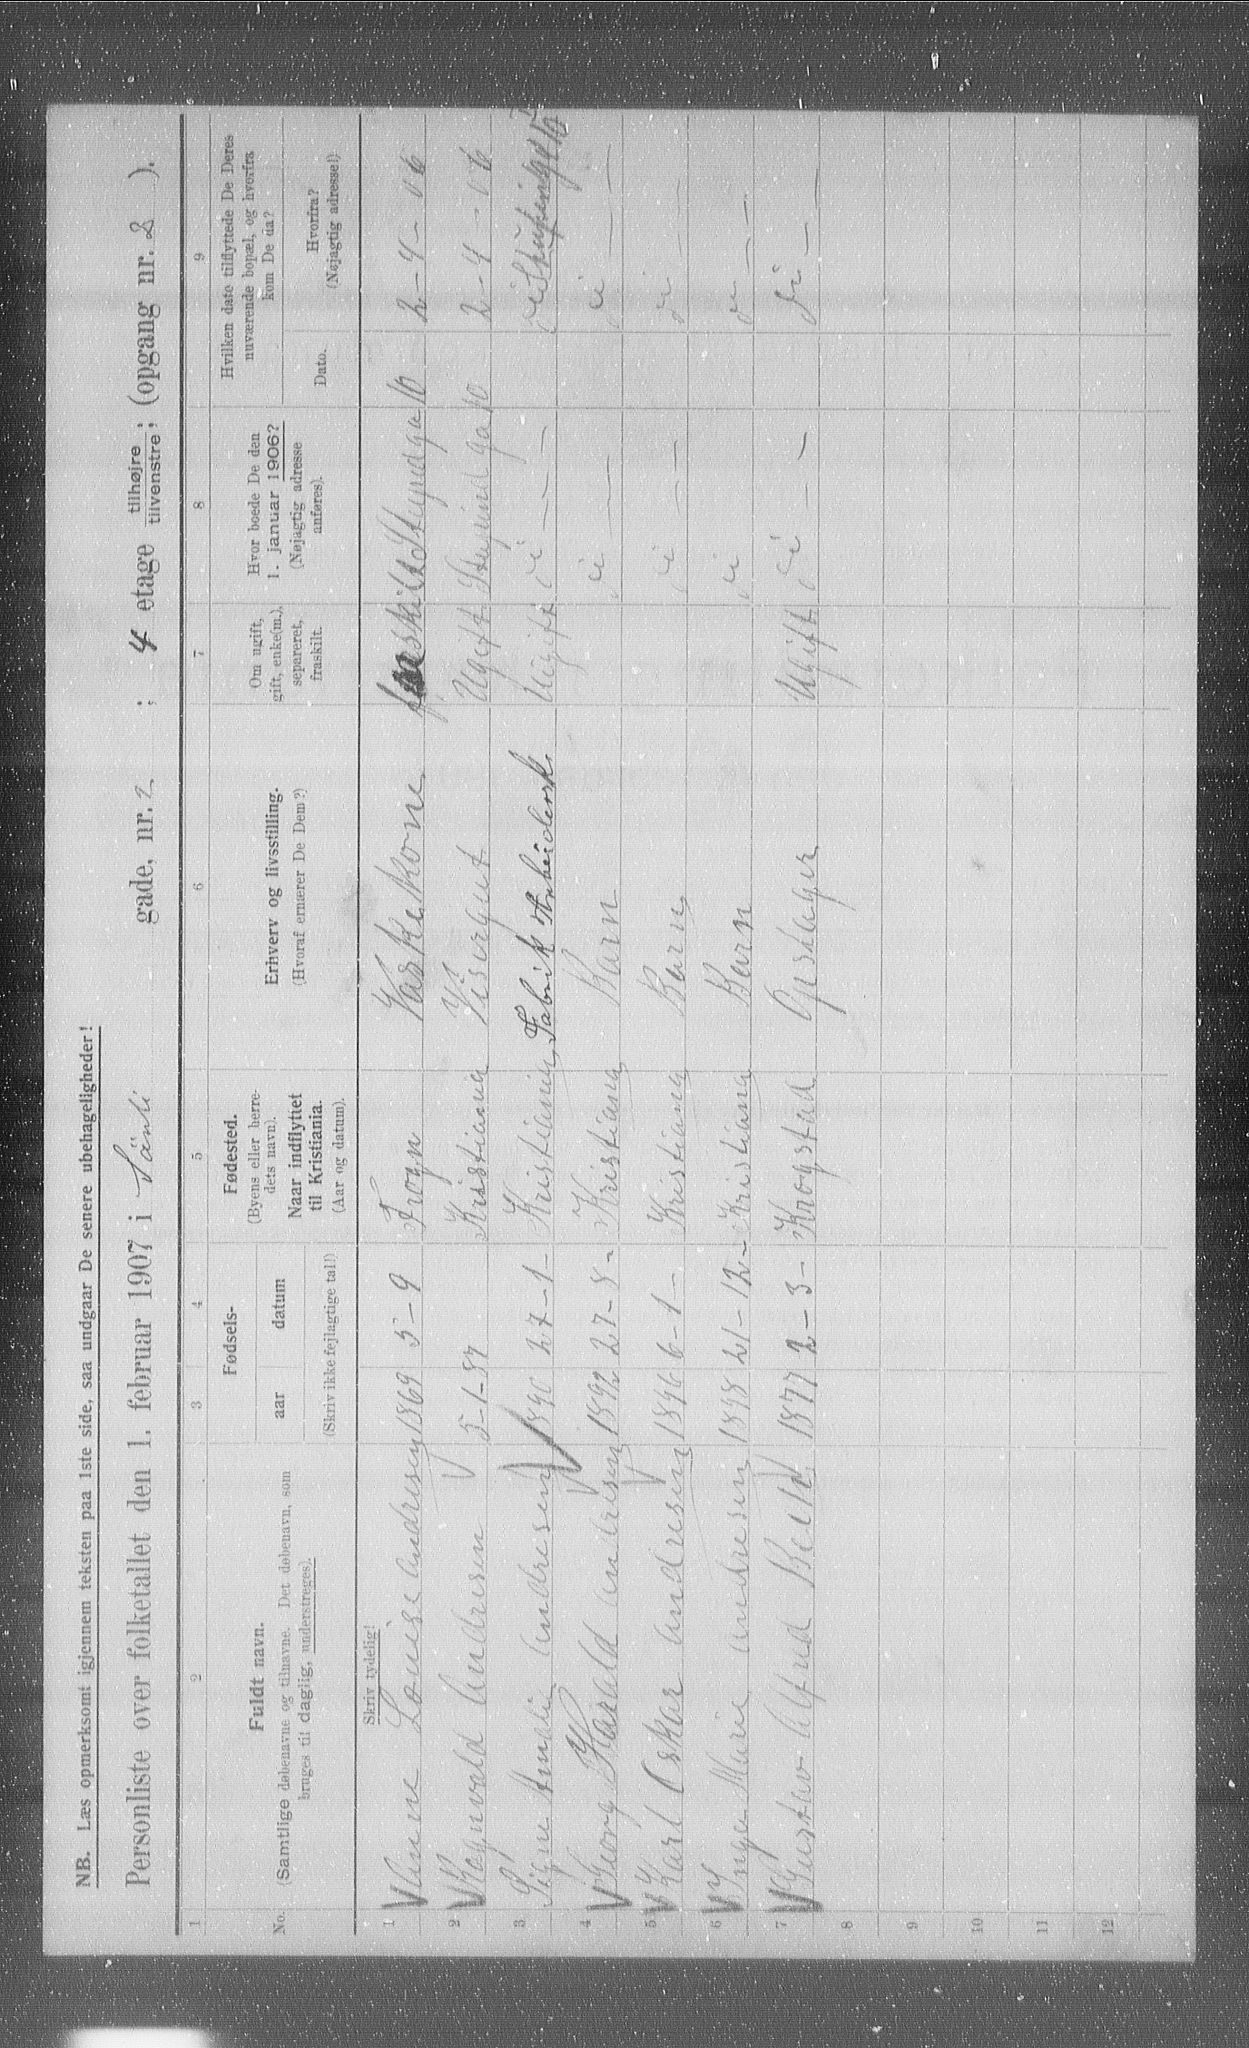 NB. Læs opmerksomt igjennem teksten paa 1ste side, saa undgaar De senere ubehageligheder!
Personliste over folketallet den 1. februar 1907 i gade, nr. 2 ; 4 etage tilhøjre tilvenstre; (opgang nr. 2 ).
1 2 3 4 5 6 7 8 9
No.
Fuldt navn.
(Samtlige døbenavne og tilnavne. Det døbenavn, som
bruges til daglig, understreges).
Fødsels-
aar datum
(Skriv ikke fejlagtige tal!)
Fødested.
(Byens eller herre-
dets navn).
Naar indflyttet
til Kristiania.
(Aar og datum).
Erhverv og livsstilling.
(Hvoraf ernærer De Dem?)
Om ugift,
gift, enke(m.),
separeret,
fraskilt.
Hvor boede De den
1. januar 1906?
(Nøjagtig adresse
anføres).
Hvilken dato tilflyttede De Deres
nuværende bopæl, og hvorfra
kom De da?
Dato.
Hvorfra?
(Nøjagtig adresse!)
Skriv tydelig!
1 Anne Louise Andresen 1869 5-9 Frogn Vaskekone fraskilt 2-4-06
2 Ragnvald Andresen 5-1-87 Kristiania Visergut Ugift 2-4-06
3 Signe Amalie Andresen 1890 27-1- Kristiania Fabrik Arbeiderske Ugift di — —
4 Georg Harald Andresen 1892 27-8- Kristiania Barn di — — di — —
5 Karl Oskar Andresen 1896 6-1- Kristiania Barn di — — di —
6 Inga Marie Andresen 1898 21-12- Kristiania Barn di di — —
7 Gustav Alfred 1877 2-3- Krogstad Opslager Ugift di — — di — —
8
9
10
11
12